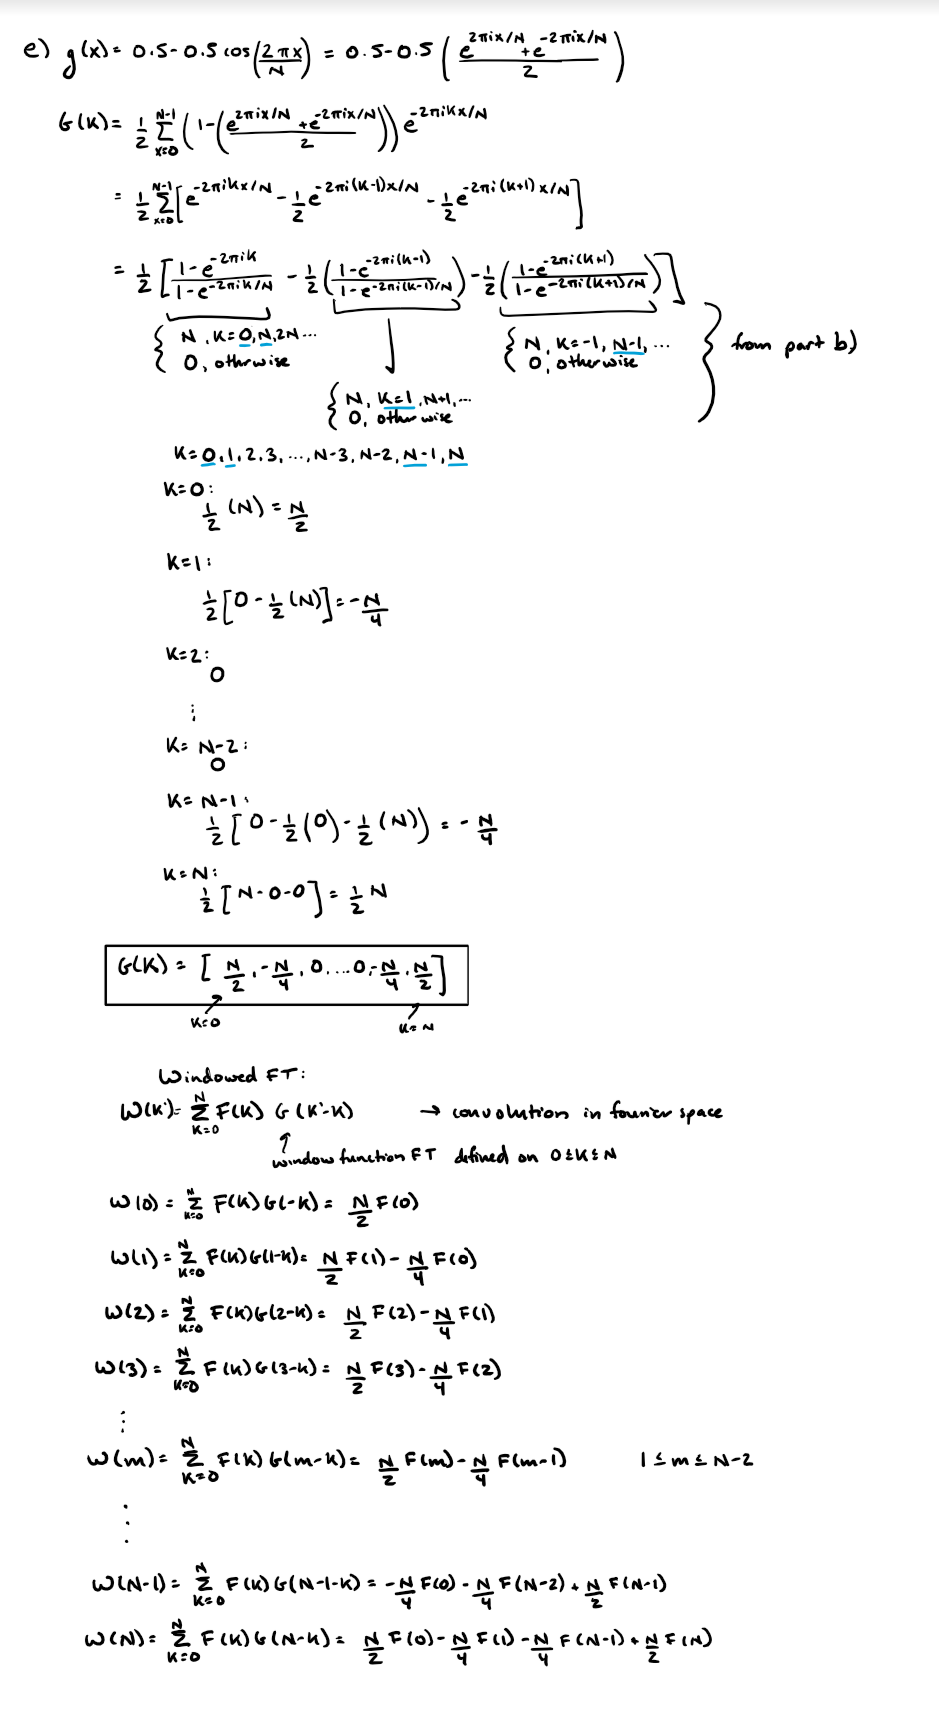 e) g(x) = 0.5 - 0.5 cos(2πx/N) = 0.5 - 0.5 ((e^{2πix/N} + e^{-2πix/N})/2)
G(K) = 1/2 Σ_{x=0}^{N-1} (1 - ((e^{2πix/N} + e^{-2πix/N})/2)) e^{-2πiKx/N}
= 1/2 Σ_{x=0}^{N-1} [e^{-2πikx/N} - 1/2 e^{-2πi(K-1)x/N} - 1/2 e^{-2πi(K+1)x/N}]
= 1/2 [(1-e^{-2πik})/(1-e^{-2πiK/N}) - 1/2 ((1-e^{-2πi(K-1)})/(1-e^{-2πi(K-1)/N})) - 1/2 ((1-e^{-2πi(K+1)})/(1-e^{-2πi(K+1)/N}))]
{ N, K=0,N,2N...
0, othrwise
{ N, K=-1, N-1, ...
0, otherwise
} from part b)
{ N, K=1, N+1,...
0, otherwise
K=0,1,2,3,...,N-3,N-2,N-1,N
K=0:
1/2 (N) = N/2
K=1:
1/2 [0 - 1/2 (N)] = -N/4
K=2:
0
⋮
K= N-2:
0
K= N-1:
1/2 [0 - 1/2 (0) - 1/2 (N)) = - N/4
K=N:
1/2 [N-0-0] = 1/2 N
G(K) = [ N/2, -N/4, 0, ...0, -N/4, N/2 ]
K=0
K=N
Windowed FT:
W(K') = Σ_{K=0}^{N} F(K) G(K'-K) → convolution in fourier space
↑
window function FT defined on 0≤K≤N
W(0) = Σ_{K=0}^{N} F(K)G(-K) = N/2 F(0)
W(1) = Σ_{K=0}^{N} F(K)G(1-K) = N/2 F(1) - N/4 F(0)
W(2) = Σ_{K=0}^{N} F(K)G(2-K) = N/2 F(2) - N/4 F(1)
W(3) = Σ_{K=0}^{N} F(K)G(3-K) = N/2 F(3) - N/4 F(2)
⋮
W(m) = Σ_{K=0}^{N} F(K)G(m-K) = N/2 F(m) - N/4 F(m-1) 1≤m≤N-2
⋮
W(N-1) = Σ_{K=0}^{N} F(K)G(N-1-K) = -N/4 F(0) - N/4 F(N-2) + N/2 F(N-1)
W(N) = Σ_{K=0}^{N} F(K)G(N-K) = N/2 F(0) - N/4 F(1) - N/4 F(N-1) + N/2 F(N)